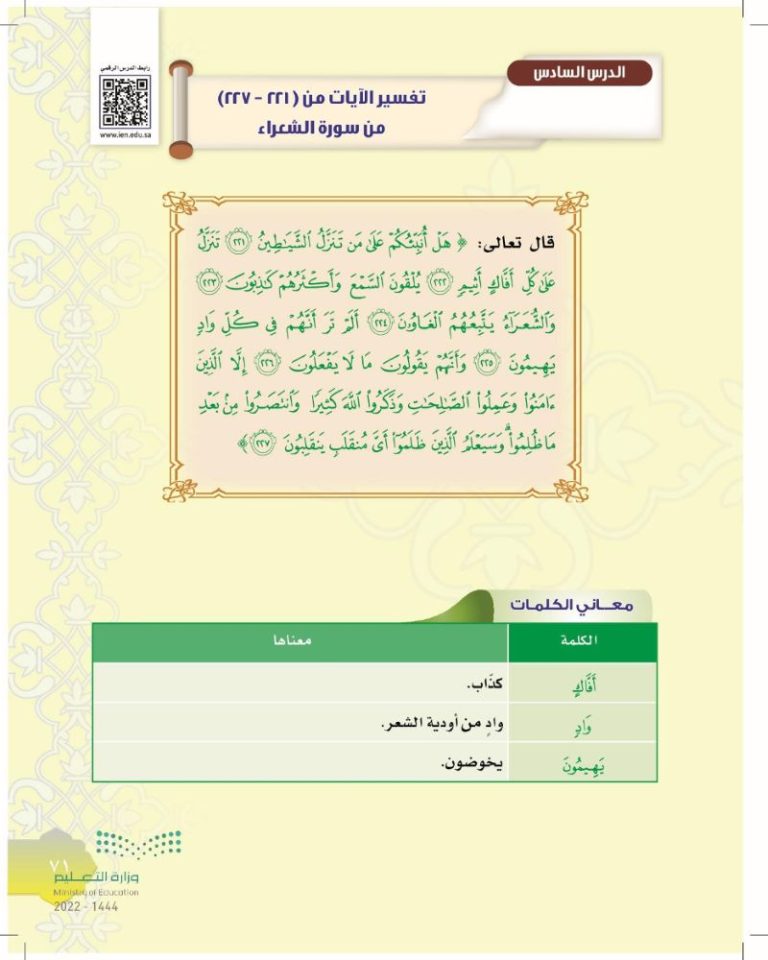 رابط الدرس الرقمي
www.ien.edu.sa
الدرس السادس
تفسير الآيات من (٢٢١ - ٢٢٧)
من سورة الشعراء
قال تعالى: ﴿ هَلْ أُنَبِّئُكُمْ عَلَىٰ مَن تَنَزَّلُ ٱلشَّيَـٰطِينُ ٢٢١ تَنَزَّلُ
عَلَىٰ كُلِّ أَفَّاكٍ أَثِيمٍ ٢٢٢ يُلْقُونَ ٱلسَّمْعَ وَأَكْثَرُهُمْ كَـٰذِبُونَ ٢٢٣
وَٱلشُّعَرَآءُ يَتَّبِعُهُمُ ٱلْغَاوُۥنَ ٢٢٤ أَلَمْ تَرَ أَنَّهُمْ فِى كُلِّ وَادٍ
يَهِيمُونَ ٢٢٥ وَأَنَّهُمْ يَقُولُونَ مَا لَا يَفْعَلُونَ ٢٢٦ إِلَّا ٱلَّذِينَ
ءَامَنُوا۟ وَعَمِلُوا۟ ٱلصَّـٰلِحَـٰتِ وَذَكَرُوا۟ ٱللَّهَ كَثِيرًا وَٱنتَصَرُوا۟ مِنۢ بَعْدِ
مَا ظُلِمُوا۟ ۗ وَسَيَعْلَمُ ٱلَّذِينَ ظَلَمُوٓا۟ أَىَّ مُنقَلَبٍ يَنقَلِبُونَ ٢٢٧ ﴾
معـــاني الكلمـات
الكلمة معناها
أَفَّاكٍ كذّاب.
وَادٍ وادٍ من أودية الشعر.
يَهِيمُونَ يخوضون.
٧١
وزارة التعـــليم
Ministry of Education
2022 - 1444